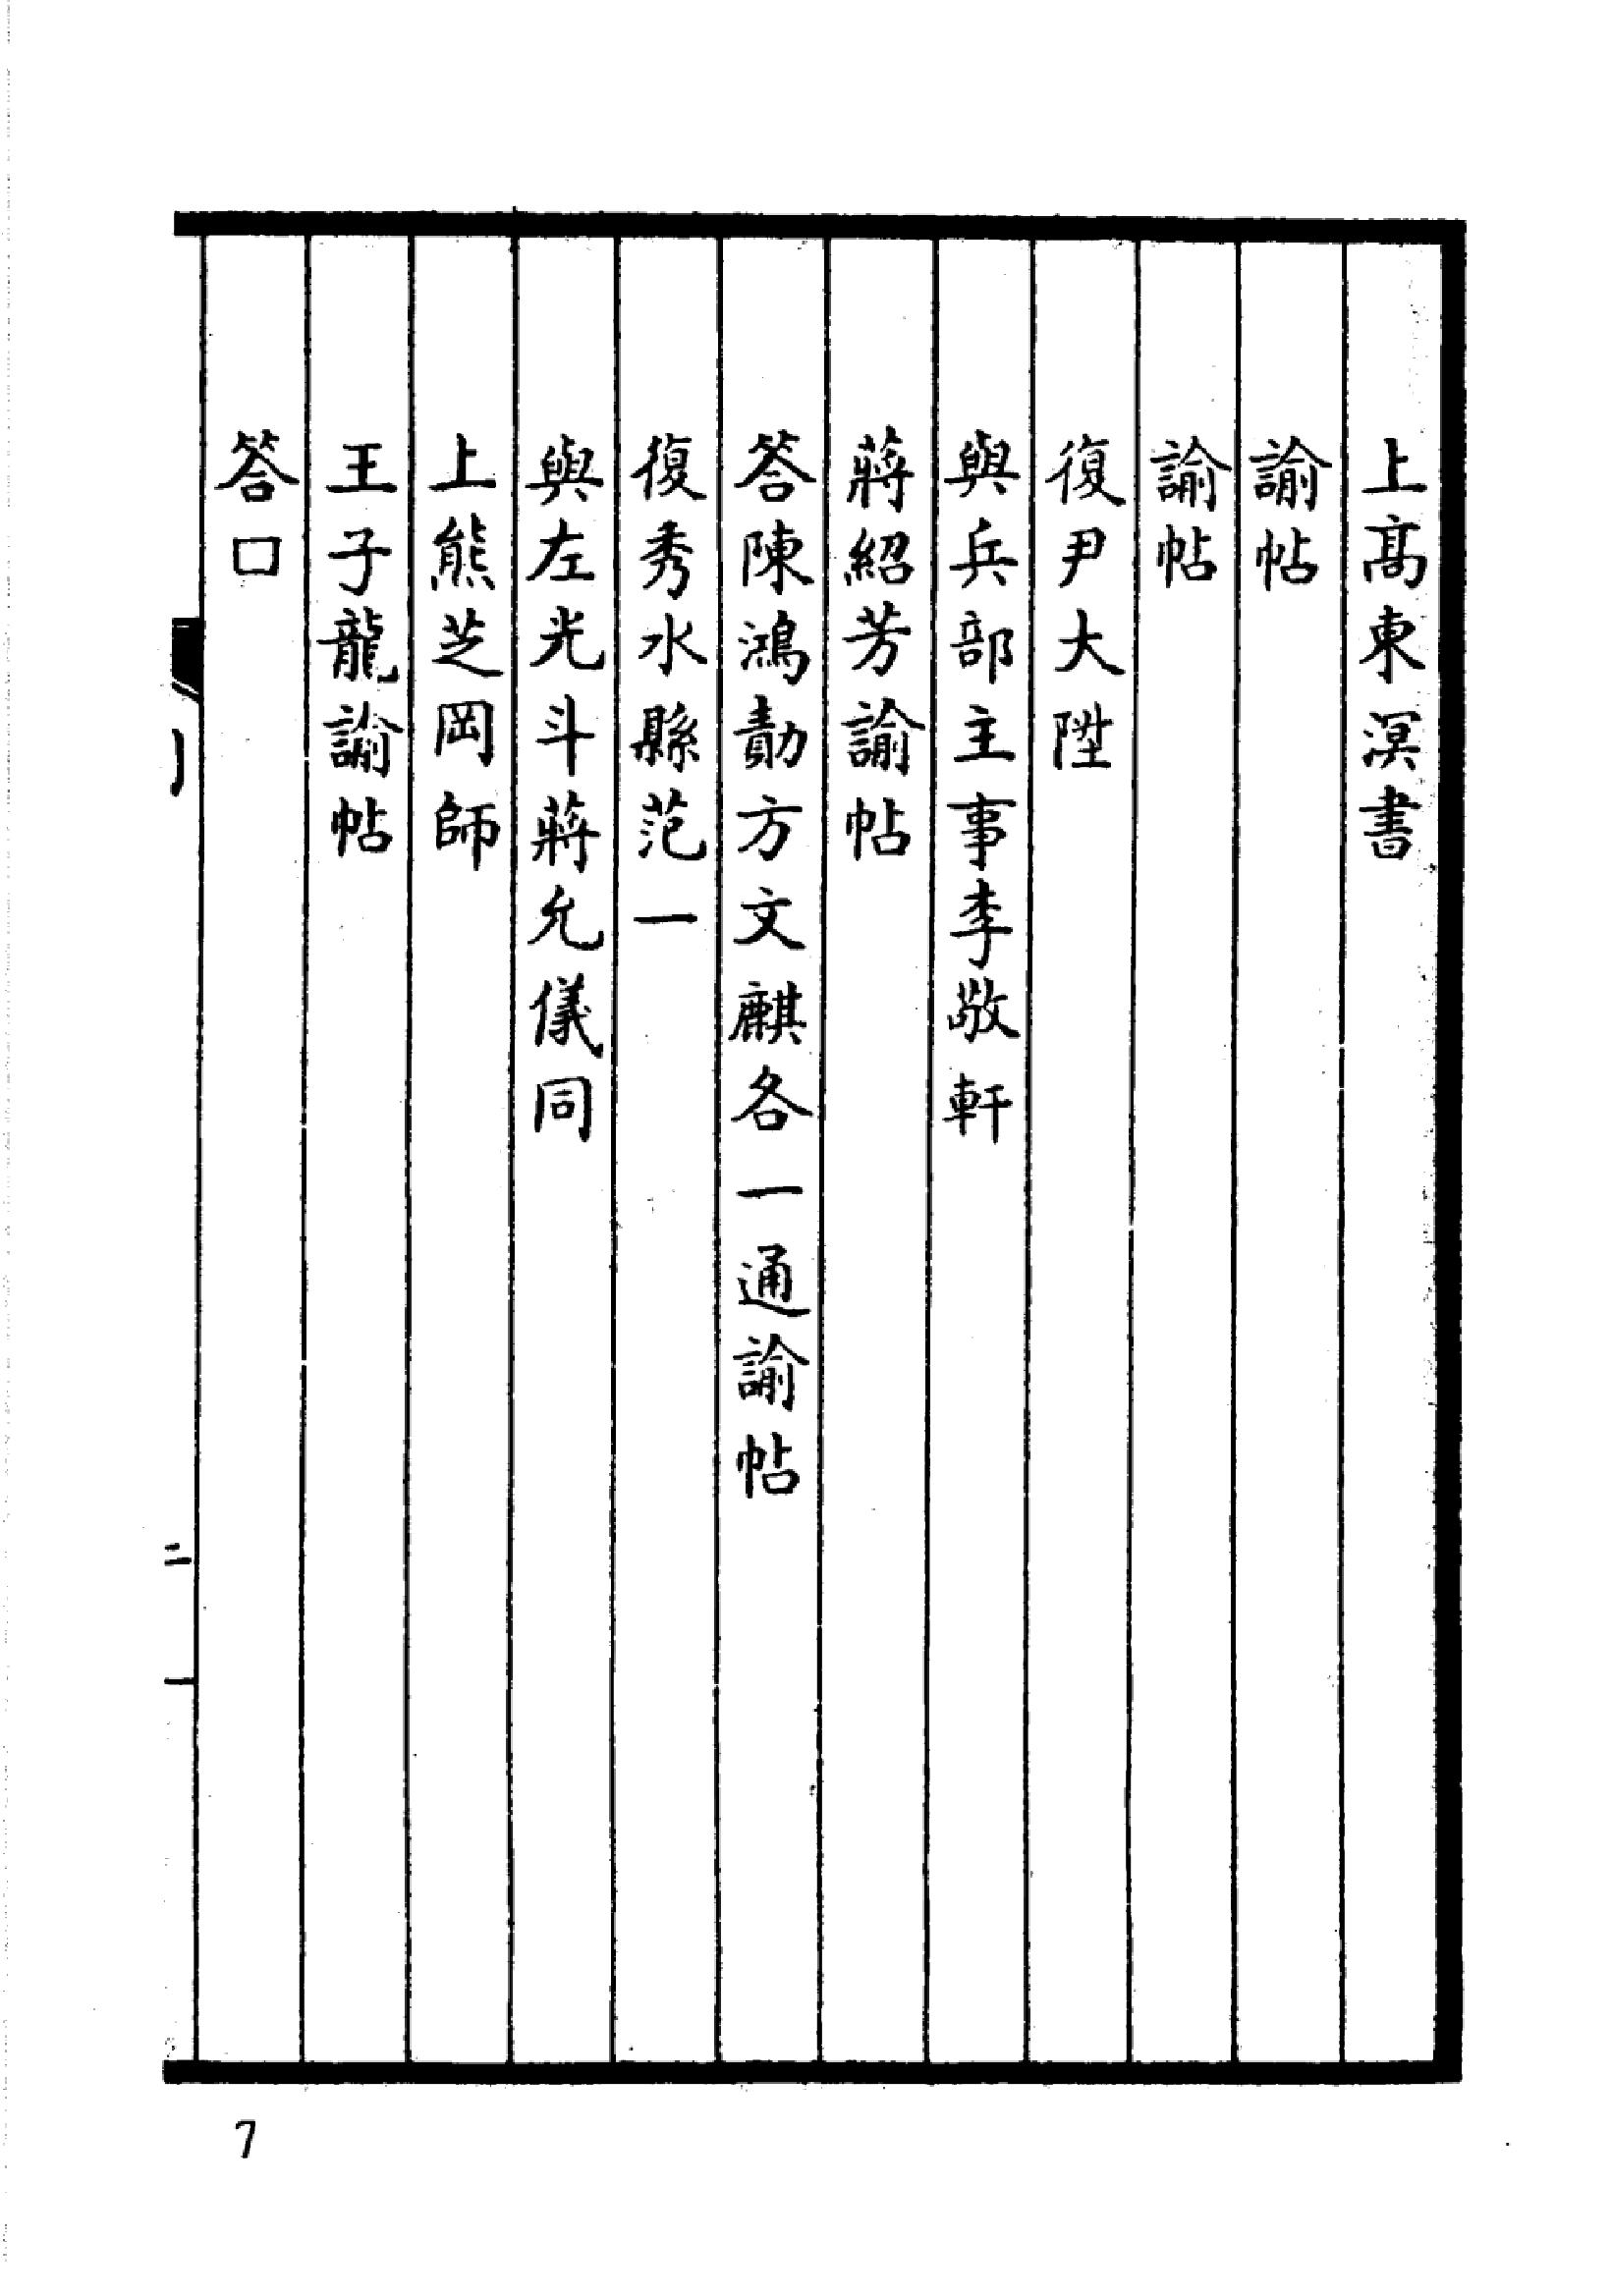 上髙東溟書
諭帖
諭帖
復尹大陞
與兵部主事李敬軒
蔣紹芳諭帖
答陳鴻勣方文麒各一通諭帖
復秀水縣范一
與左光斗蔣允儀同
上熊芝岡師
王子龍諭帖
答口
7